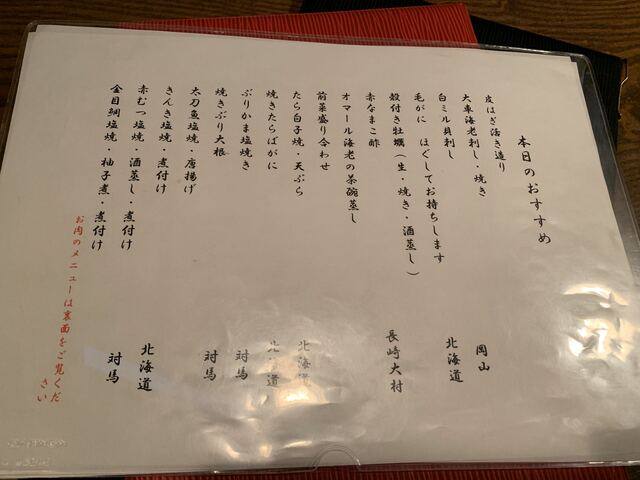 本日のおすすめ
皮はぎ活き造り
大車海老刺し・焼き 岡山
白ミル貝刺し
毛がに ほぐしてお持ちします 北海道
殻付き牡蠣(生・焼き・酒蒸し) 長崎大村
赤なまこ酢
オマール海老の茶碗蒸し
前菜盛り合わせ
たら白子焼・天ぷら 北海道
焼きたらばがに 北海道
ぶりかま塩焼き 対馬
焼きぶり大根
太刀魚塩焼・唐揚げ 対馬
きんき塩焼・煮付け
赤むつ塩焼・酒蒸し・煮付け 北海道
金目鯛塩焼・柚子煮・煮付け 対馬
お肉のメニューは裏面をご覧くだ
さい